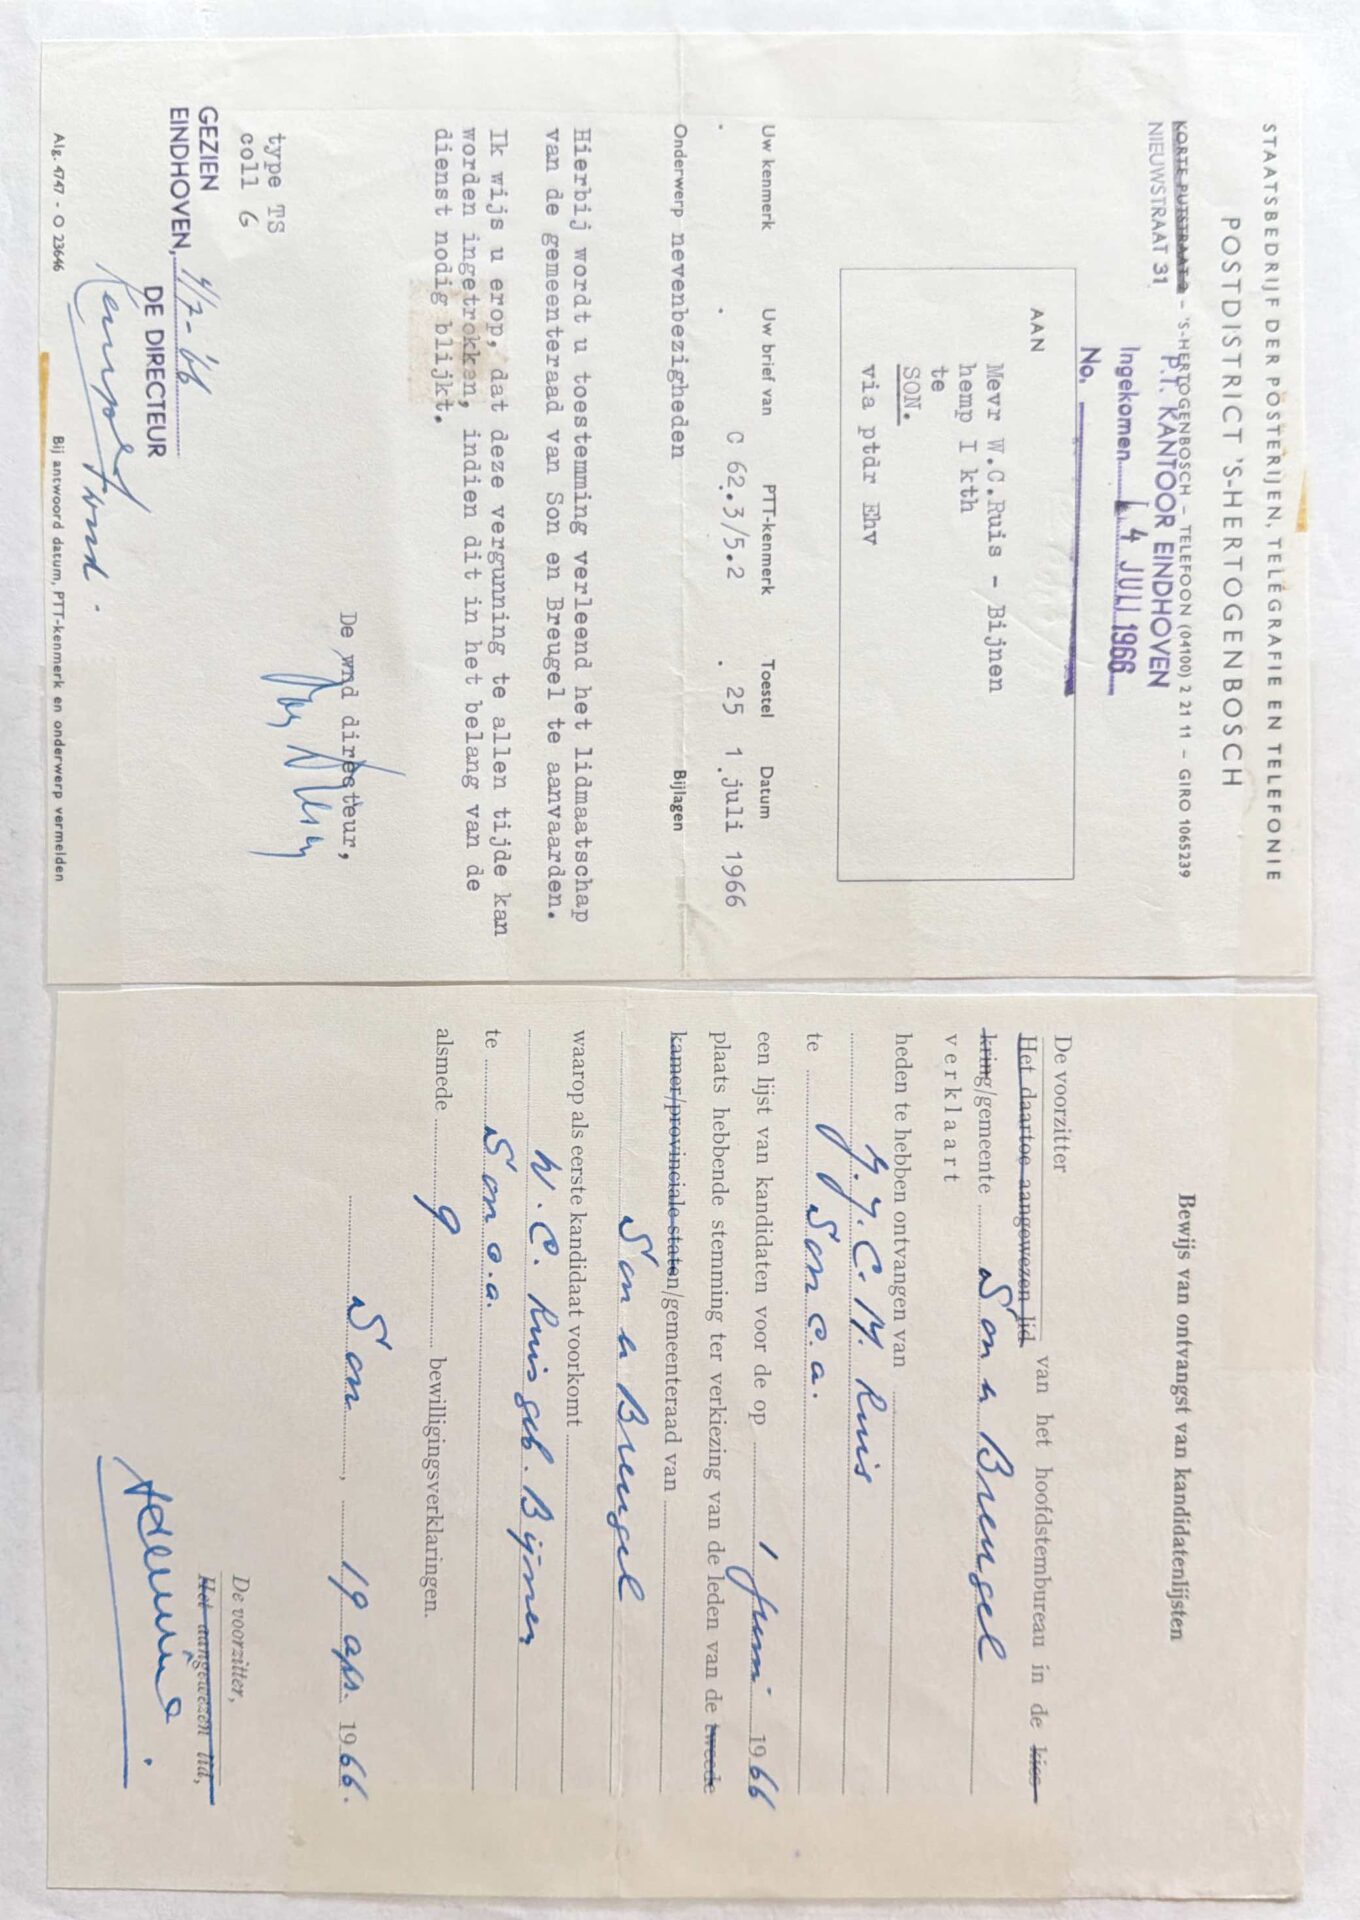 STAATSBEDRIJF DER POSTERIJEN, TELEGRAFIE EN TELEFONIE
POSTDISTRICT 'S-HERTOGENBOSCH
KORTE PUTSTRAAT 2 - 'S-HERTOGENBOSCH - TELEFOON (04100) 2 21 11 - GIRO 1065239
NIEUWSTRAAT 31
P.T. KANTOOR EINDHOVEN
Ingekomen 4 JULI 1966
No.
AAN
Mevr W.C.Ruis - Bijnen
hemp I kth
te
SON.
via ptdr Ehv
Uw kenmerk Uw brief van PTT-kenmerk Toestel Datum
. . C 62.3/5.2 . 25 1 juli 1966
Onderwerp nevenbezigheden Bijlagen
Hierbij wordt u toestemming verleend het lidmaatschap
van de gemeenteraad van Son en Breugel te aanvaarden.
Ik wijs u erop, dat deze vergunning te allen tijde kan
worden ingetrokken, indien dit in het belang van de
dienst nodig blijkt.
De wnd directeur,
type TS
coll G
GEZIEN
EINDHOVEN, 4/7-'66
DE DIRECTEUR
Alg. 4747 - O 23646 Bij antwoord datum, PTT-kenmerk en onderwerp vermelden
Bewijs van ontvangst van kandidatenlijsten
De voorzitter
Het daartoe aangewezen lid van het hoofdstembureau in de kies-
kring/gemeente Son u Breugel
verklaart
heden te hebben ontvangen van
J.J.C.M. Ruis
te Son c.a.
een lijst van kandidaten voor de op 1 juni 1966
plaats hebbende stemming ter verkiezing van de leden van de tweede
kamer/provinciale staten/gemeenteraad van
Son u Breugel
waarop als eerste kandidaat voorkomt
W.C. Ruis geb. Bijnen
te Son c.a.
alsmede 9 bewilligingsverklaringen.
Son, 19 apr. 1966.
De voorzitter,
Het aangewezen lid,